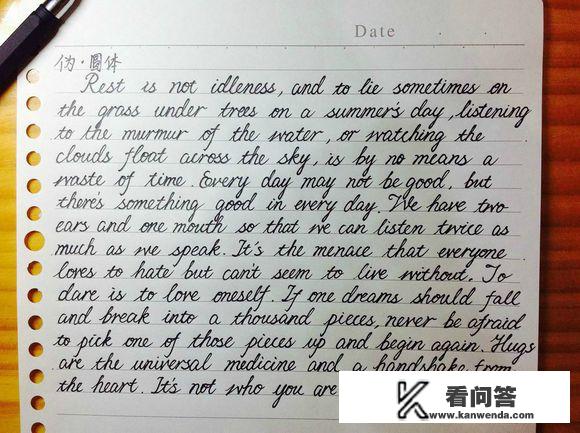 Date
伪·圆体
Rest is not idleness, and to lie sometimes on
the grass under trees on a summer's day, listening
to the murmur of the water, or watching the
clouds float across the sky, is by no means a
waste of time. Every day may not be good, but
there's something good in every day. We have two
ears and one mouth so that we can listen twice as
much as we speak. It's the menace that everyone
loves to hate but can't seem to live without. To
dare is to love oneself. If one dreams should fall
and break into a thousand pieces, never be afraid
to pick one of those pieces up and begin again. Hugs
are the universal medicine and a handshake from
the heart. It's not who you are
K 看问答
www.kanwenda.com